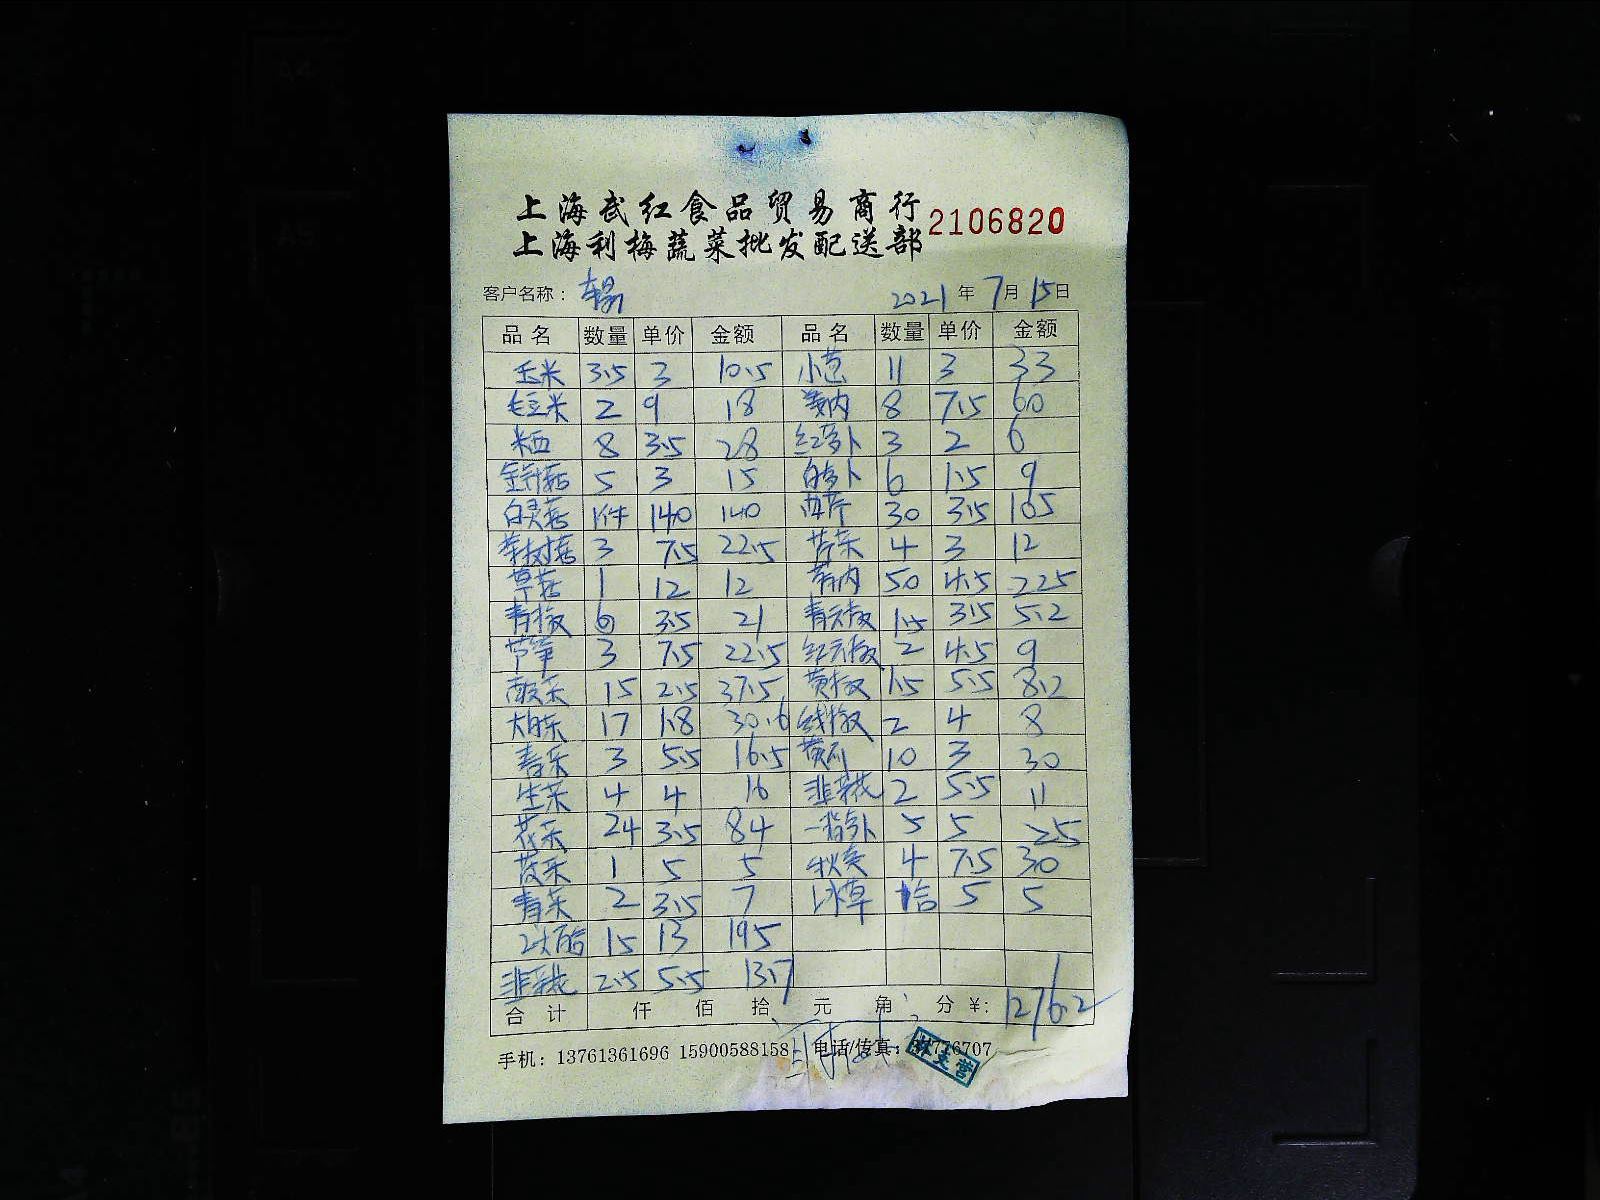 上海武红食品贸易商行
上海利梅蔬菜批发配送部 2106820
客户名称： 2021 年 7 月 15 日
品名 数量 单价 金额 品名 数量 单价 金额
玉米 3.5 3 10.5 小芭 11 3 33
毛豆米 2 9 18 8 7.5 60
米西 8 3.5 28 红萝卜 3 2 6
金针菇 5 3 15 白萝卜 6 1.5 9
白灵菇 1件 140 140 西芹 30 3.5 105
茶树菇 3 7.5 22.5 4 3 12
草菇 1 12 12 50 4.5 225
青椒 6 3.5 21 青尖椒 1.5 3.5 5.2
芦笋 3 7.5 22.5 红尖椒 2 4.5 9
15 2.5 37.5 黄椒 1.5 5.5 8.2
大白菜 17 1.8 30.6 线椒 2 4 8
3 5.5 16.5 黄瓜 10 3 30
生菜 4 4 16 韭菜花 2 5.5 11
花菜 24 3.5 84 一指萝卜 5 5 25
菠菜 1 5 5 秋葵 4 7.5 30
青菜 2 3.5 7 冰草 1合 5 5
15 13 195
韭菜花 2.5 5.5 13.7
合计 仟 佰 拾 元 角 分 ¥: 1276.2
手机：13761361696 15900588158 电话/传真： 776707